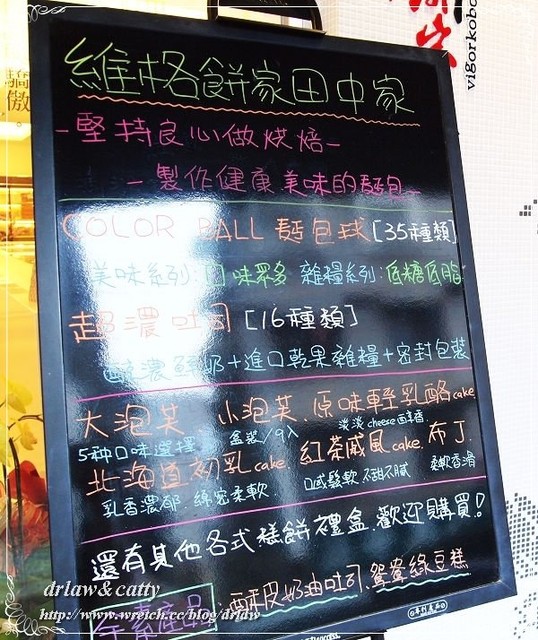 維格餅家田中家
-堅持良心做烘焙-
-製作健康美味的麵包-
COLOR BALL 麵包球[35種類]
美味系列:口味眾多 雜糧系列:低糖低脂
超濃吐司[16種類]
濃鮮奶+進口乾果雜糧+密封包裝
大泡芙、小泡芙、原味輕乳酪cake
5种口味選擇 盒裝/9入 淡淡cheese香
北海道初乳cake、紅茶戚風cake、布丁
乳香濃郁、綿密柔軟 口感鬆軟不甜不膩 柔軟香滑
還有其他各式糕餅禮盒、歡迎購買!
奶油吐司、鴛鴦綠豆糕
vigorkobo
驕傲
drlaw&catty
http://www.wretch.cc/blog/drlaw